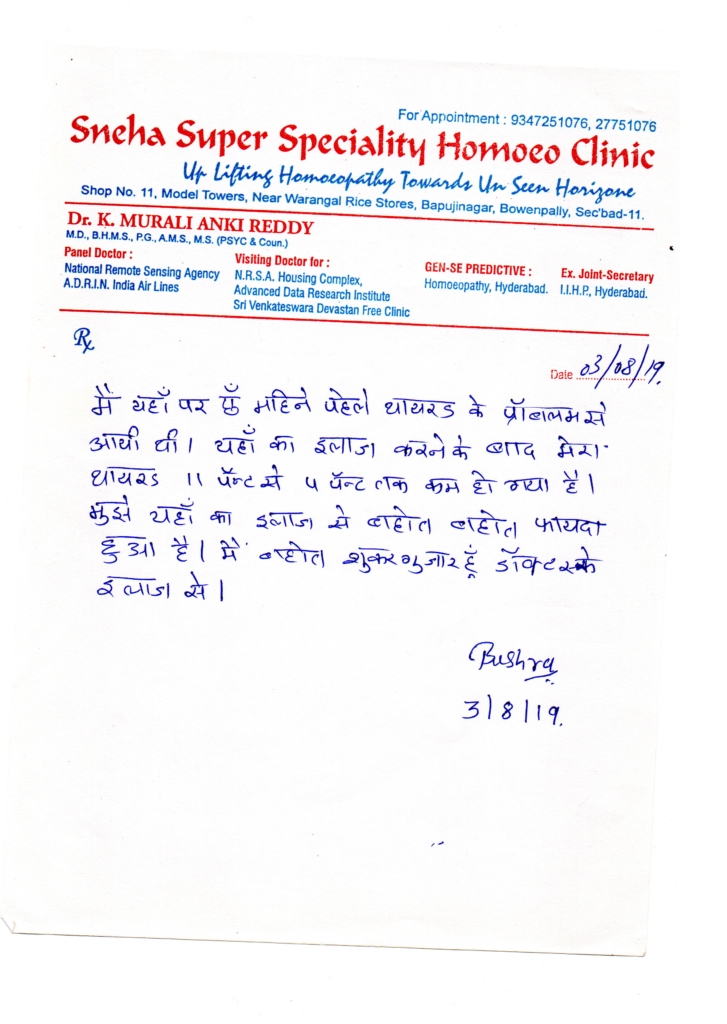 For Appointment : 9347251076, 27751076
Sneha Super Speciality Homoeo Clinic
Up Lifting Homoeopathy Towards Un Seen Horizone
Shop No. 11, Model Towers, Near Warangal Rice Stores, Bapujinagar, Bowenpally, Sec'bad-11.
Dr. K. MURALI ANKI REDDY
M.D., B.H.M.S., P.G., A.M.S., M.S. (PSYC & Coun.)
Panel Doctor :
National Remote Sensing Agency
A.D.R.I.N. India Air Lines
Visiting Doctor for :
N.R.S.A. Housing Complex,
Advanced Data Research Institute
Sri Venkateswara Devastan Free Clinic
GEN-SE PREDICTIVE :
Homoeopathy, Hyderabad.
Ex. Joint-Secretary
I.I.H.P., Hyderabad.
Rx
Date 03/08/19.
मैं यहाँ पर छँ महिने पेहले थायरड के प्रॉबालम से
आयी थी। यहाँ का इलाज करने के बाद मेरा
थायरड 11 पॅन्ट से 4 पॅन्ट तक कम हो गया है।
मुझे यहाँ का इलाज से बाहोत बाहोत फायदा
हुआ है। मैं बाहोत शुकरगुजार हूँ डॉक्टर के
इलाज से।
Bushra
3/8/19.